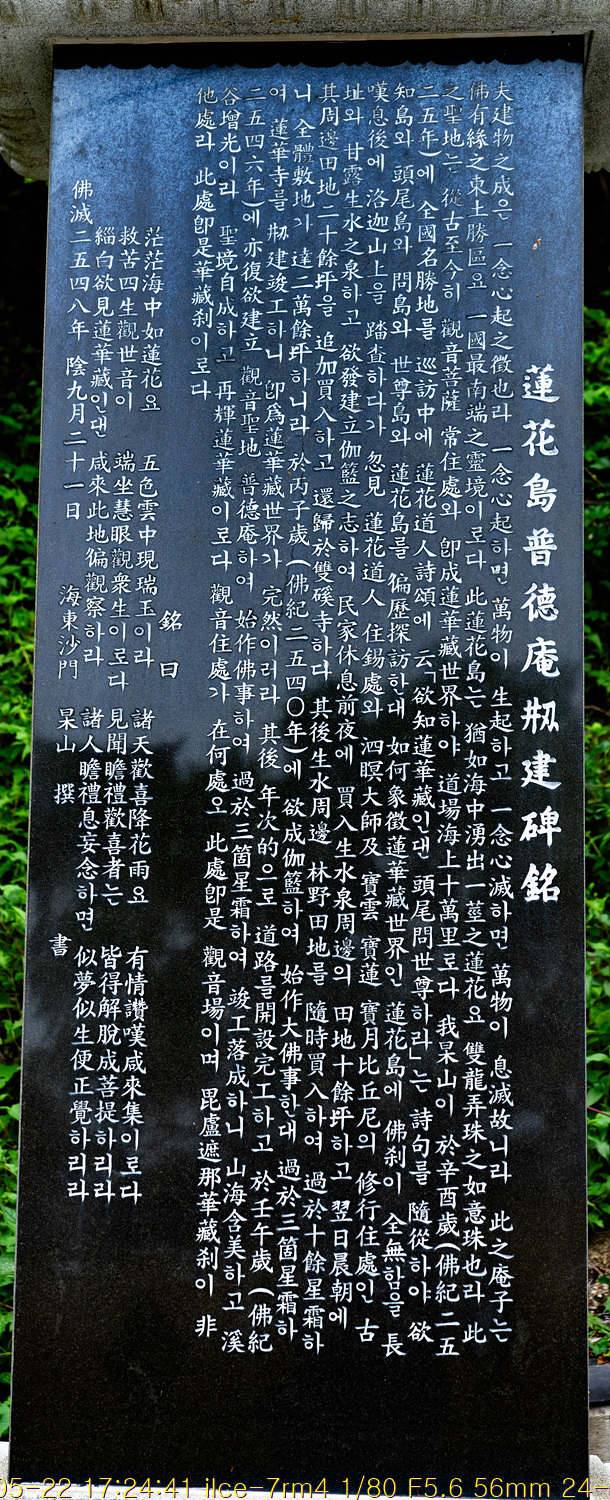 蓮花島普德庵刱建碑銘
夫建物之成은 一念心起之徵也라 一念心起하면 萬物이 生起하고 一念心滅하면 萬物이 息滅故니라 此之庵子는
佛有緣之東土勝區요 一國最南端之靈境이로다 此蓮花島는 猶如海中湧出一莖之蓮花요 雙龍弄珠之如意珠也라 此
之聖地는 從古至今히 觀音菩薩 常住處와 卽成蓮華藏世界하야 道場海上十萬里로다 我杲山이 於辛酉歲(佛紀二五
二五年)에 全國名勝地를 巡訪中에 蓮花道人詩頌에 云「欲知蓮華藏인댄 頭尾問世尊하라」는 詩句를 隨從하야 欲
知島와 頭尾島와 問島와 世尊島와 蓮花島를 徧歷探訪한대 如何象徵蓮華藏世界인 蓮花島에 佛刹이 全無함을 長
嘆息後에 洛迦山上을 踏査하다가 忽見 蓮花道人 住錫處와 泗暝大師及 寶雲 寶蓮 寶月比丘尼의 修行住處인 古
址와 甘露生水之泉하고 欲發建立伽籃之志하여 民家休息前夜에 買入生水泉周邊의 田地十餘坪하고 翌日晨朝에
其周邊田地二十餘坪을 追加買入하고 還歸於雙磎寺하다 其後生水周邊 林野田地를 隨時買入하여 過於十餘星霜하
니 全體敷地가 達二萬餘坪하니라 於丙子歲(佛紀二五四〇年)에 欲成伽籃하여 始作大佛事한대 過於三箇星霜하
여 蓮華寺를 刱建竣工하니 卽爲蓮華藏世界가 完然이러라 其後 年次的으로 道路를開設完工하고 於壬午歲(佛紀
二五四六年)에 亦復欲建立 觀音聖地 普德庵하여 始作佛事하여 過於三箇星霜하여 竣工落成하니 山海含美하고 溪
谷增光이라 聖境自成하고 再輝蓮華藏이로다 觀音住處가 在何處오 此處卽是 觀音場이며 毘盧遮那華藏刹이 非
他處라 此處卽是華藏刹이로다
銘曰
茫茫海中如蓮花요 五色雲中現瑞玉이라 諸天歡喜降花雨요 有情讚嘆咸來集이로다
救苦四生觀世音이 端坐慧眼觀衆生이로다 見聞瞻禮歡喜者는 皆得解脫成菩提하리라
緇白欲見蓮華藏인댄 咸來此地徧觀察하라 諸人瞻禮息妄念하면 似夢似生便正覺하리라
佛滅二五四八年 陰九月二十一日 海東沙門 杲山 撰 書
05-22 17:24:41 ilce-7rm4 1/80 F5.6 56mm 24-